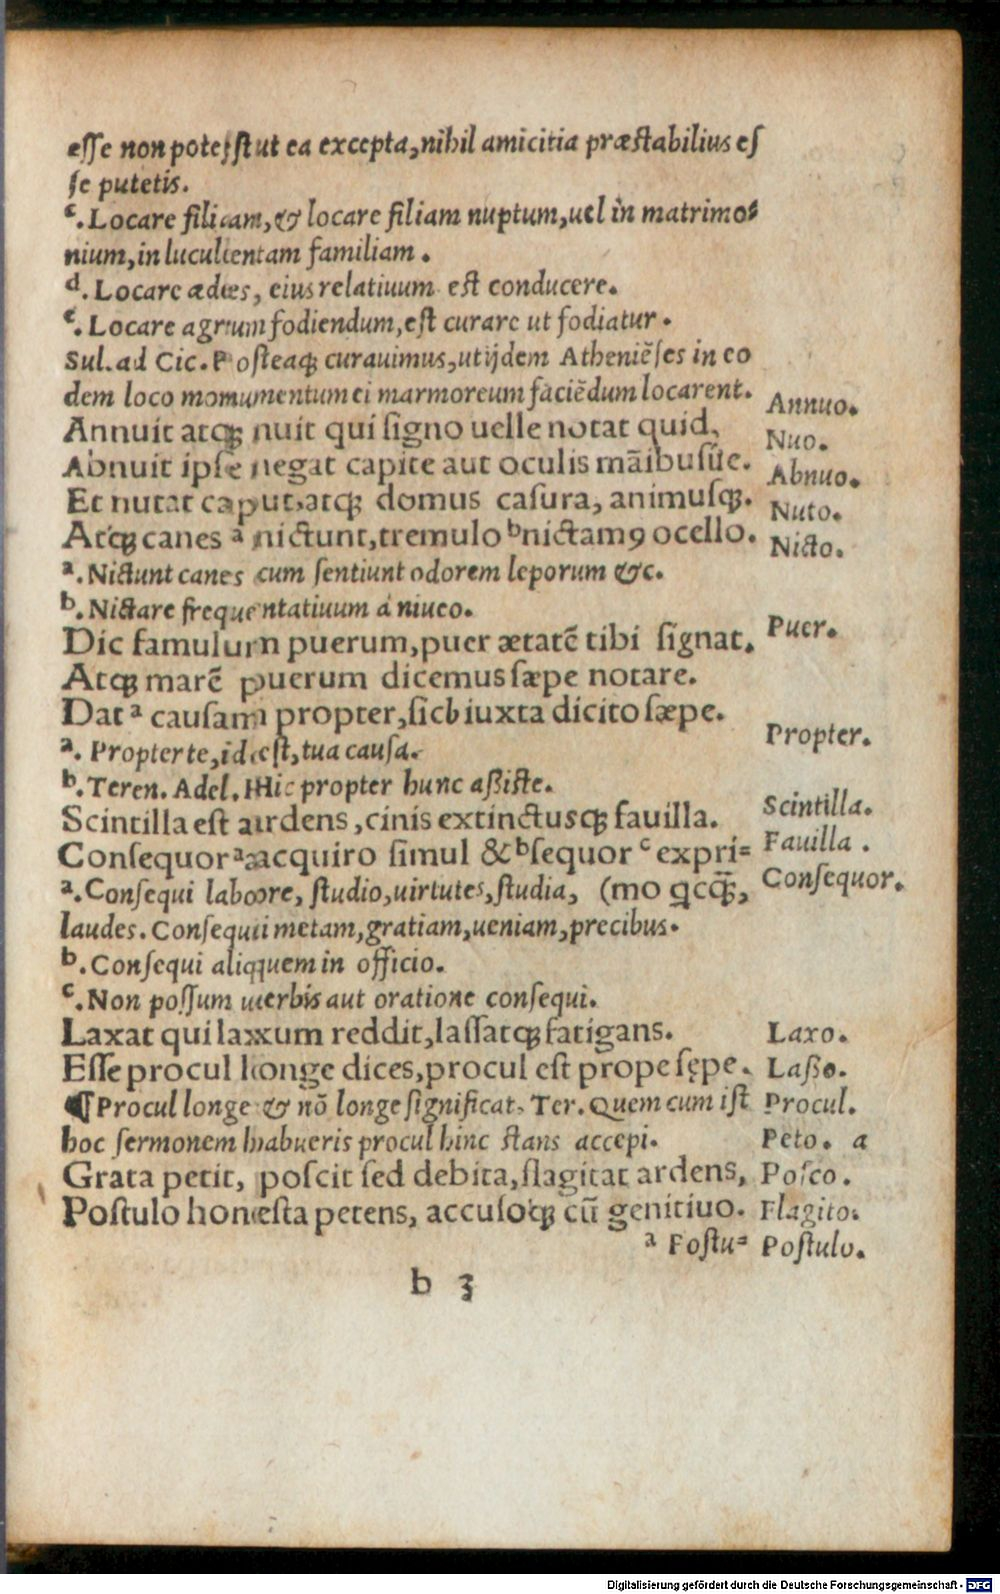 esse non potest ut ea excepta, nihil amicitia præstabilius es
se putetis.
c. Locare filiam, & locare filiam nuptum, uel in matrimo⸗
nium, in luculentam familiam.
d. Locare ædes, eius relatiuum est conducere.
e. Locare agrum fodiendum, est curare ut fodiatur.
Sul. ad Cic. Posteaq; curauimus, ut ijdem Atheniēses in eo
dem loco momumentum ei marmoreum faciēdum locarent.
Annuit atq; nuit qui signo uelle notat quid, Annuo.
Abnuit ipse negat capite aut oculis māibusue. Nuo.
Et nutat caput, atq; domus casura, animusq;. Abnuo.
Atq; canes a nictunt, tremulo b nictamꝰ ocello. Nuto.
Nicto.
a. Nictunt canes cum sentiunt odorem leporum &c.
b. Nictare frequentatiuum á niueo.
Dic famulum puerum, puer ætatē tibi signat. Puer.
Atq; marē puerum dicemus sæpe notare.
Dat a causam propter, sic b iuxta dicito sæpe. Propter.
a. Propter te, id est, tua causa.
b. Teren. Adel. Hic propter hunc aßiste.
Scintilla est ardens, cinis extinctusq; fauilla. Scintilla.
Consequor a acquiro simul & b sequor c expri= Fauilla.
a. Consequi labore, studio, uirtutes, studia, (mo qcq̄;, Consequor.
laudes. Consequi metam, gratiam, ueniam, precibus.
b. Consequi aliquem in officio.
c. Non possum uerbis aut oratione consequi.
Laxat qui laxum reddit, lassatq; fatigans. Laxo.
Esse procul longe dices, procul est prope sępe. Laßo.
¶ Procul longe & nō longe significat. Ter. Quem cum ist Procul.
hoc sermonem habueris procul hinc stans accepi. Peto. a
Grata petit, poscit sed debita, flagitat ardens, Posco.
Postulo honesta petens, accusoq; cū genitiuo. Flagito.
a Postu= Postulo.
b 3
Digitalisierung gefördert durch die Deutsche Forschungsgemeinschaft - DFG